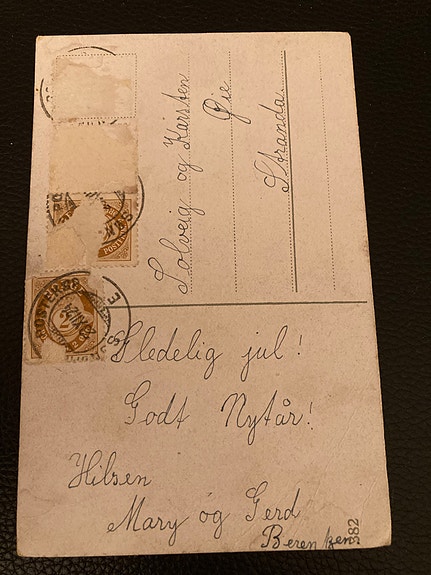 Solveig og Karsten
Øie
Stranda.
Gledelig jul!
Godt Nytår!
Hilsen
Mary og Gerd
Berentzen
382
POSTE
2